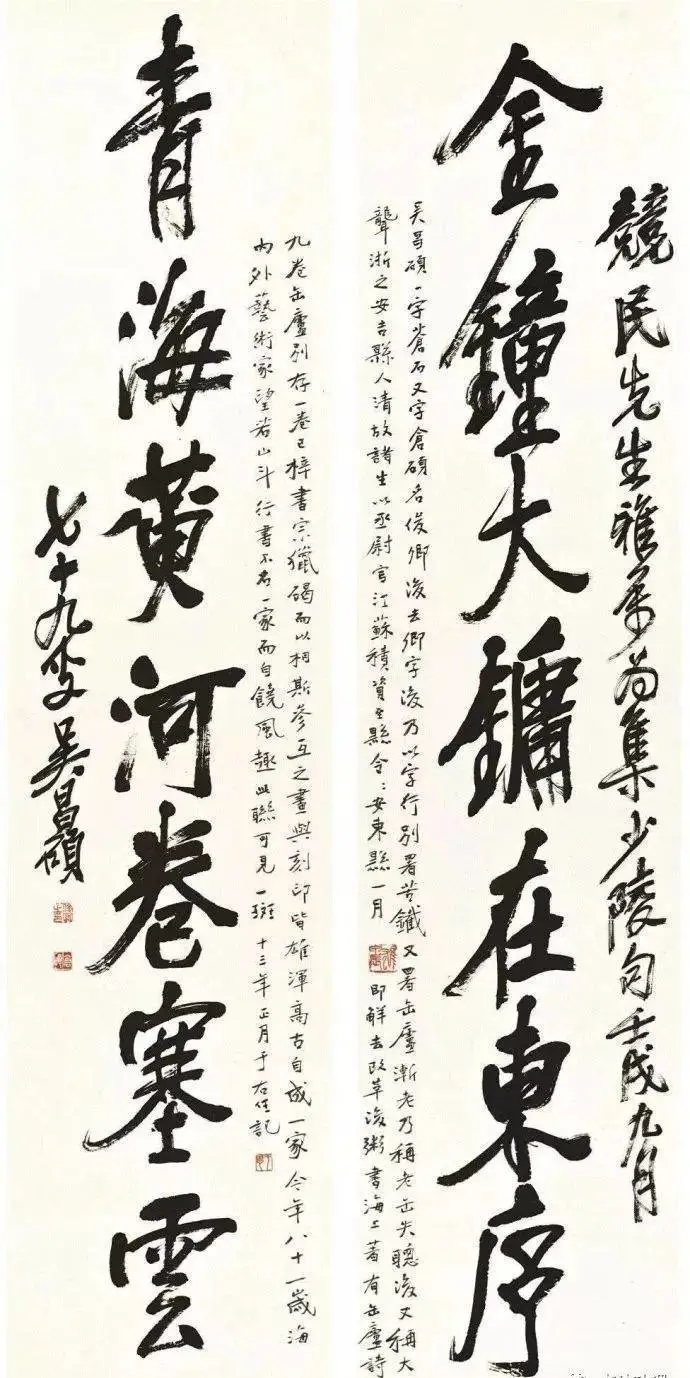 競民先生雅屬為集少陵句壬戌九月
金鐘大鏞在東序
吳昌碩一字蒼石又字倉碩名俊卿後去卿字後乃以字行別署苦鐵又署缶廬漸老乃稱老缶失聰後又稱大
聾浙之安吉縣人清故諸生以丞尉官江蘇積資至縣令〻安東縣一月即解去改革後鬻書海上著有缶廬詩
九卷缶廬別存一卷已梓書宗獵碣而以相斯參互之畫與刻印皆雄渾高古自成一家今年八十一歲海
內外藝術家望若山斗行書不名一家而自饒風趣此聯可見一斑十三年正月于右任記
青海黃河卷塞雲
七十九叟吳昌碩